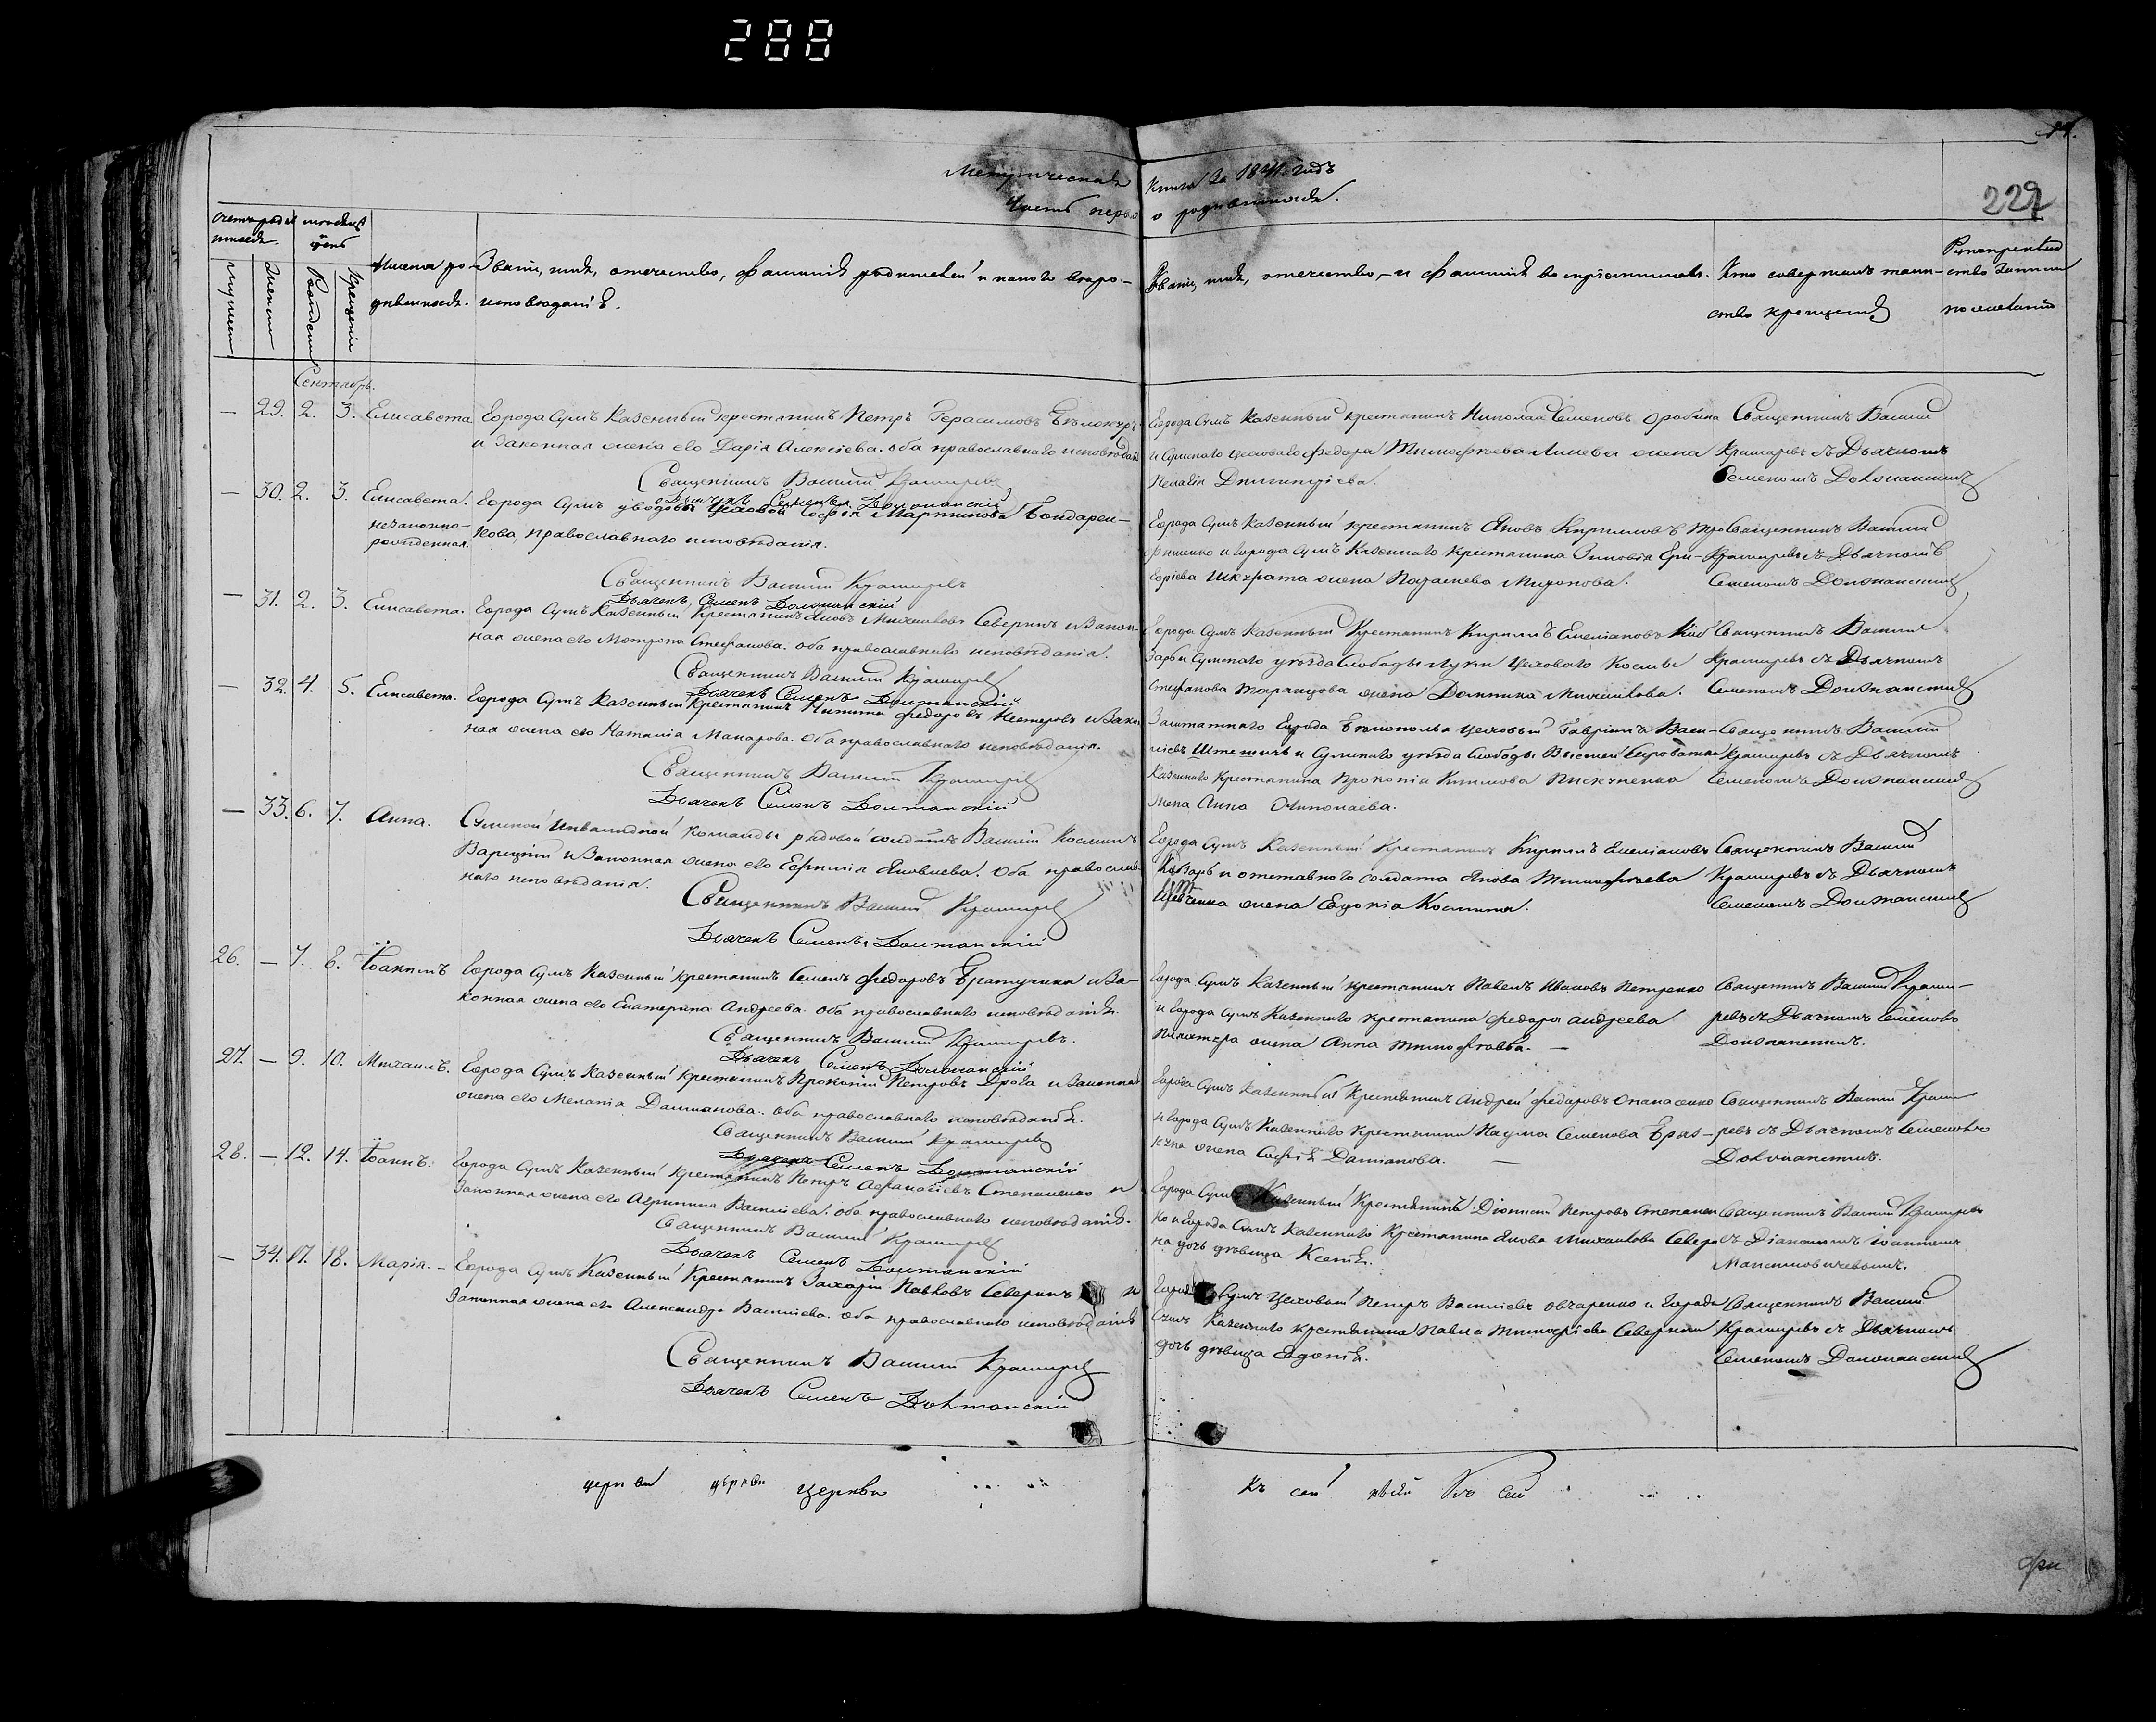 288
Метрическая книга за 1841 годъ
Часть перва о родившихся.
229
Счетъ родив
шихся.
мѣсяцъ
день
мущинъ
женска
Рожденія
Крещенія
Имена ро-
дившихся.
Званіе, имя, отечество, фамилія родителей и какого вѣро-
исповѣданія.
Званіе, имя, отечество, и фамилія воспріемниковъ.
Кто совершалъ таин-
ство крещенія
Рукоприклад
ство
по желанію
Сентябрь.
— 29. 2. 3. Елисавета
Города Сумъ казенный крестьянинъ Петръ Герасимовъ
и законная жена его Дарія Алексіева. оба православнаго исповѣданія
Священникъ Василій Крамаревъ
Города Сумъ казенный крестьянинъ Николай Семеновъ
и Сумскаго цеховаго Федора Тимофѣева жена
Пелагія Димитріева.
Священникъ Василій
Крамаревъ съ Дьячкомъ
Семеномъ Должанскимъ
— 30. 2. 3. Елисавета.
незаконно-
рожденная.
Дьячекъ Семенъ Должанскій
Города Сумъ вдова Цеховой Софія Мартинова Бондарен-
кова, православнаго исповѣданія.
Священникъ Василій Крамаревъ
Дьячекъ Семенъ Должанскій
Города Сумъ казенный крестьянинъ Яковъ Кириловъ Тро
фименко и города Сумъ казеннаго крестьянина Зиновія Гри-
горіева Шкурата жена Параскева Миронова.
Священникъ Василій
Крамаревъ съ Дьячкомъ
Семеномъ Должанскимъ
— 31. 2. 3. Елисавета.
Города Сумъ Казенный Крестьянинъ Яковъ Михайловъ Северинъ и закон-
ная жена его Мотрона Стефанова. оба православнаго исповѣданія.
Священникъ Василій Крамаревъ
Дьячекъ Семенъ Должанскій
Города Сумъ казенный Крестьянинъ Кириллъ Емеліановъ Коб
зарь и Сумскаго уѣзда Слободы Луки Цеховаго Космы
Стефанова жена Домника Михайлова.
Священникъ Василій
Крамаревъ съ Дьячкомъ
Семеномъ Должанскимъ
— 32. 4. 5. Елисавета.
Города Сумъ Казенный Крестьянинъ Никита Федоровъ Нестеровъ и закон
ная жена его Наталія Макарова. Оба православнаго исповѣданія.
Священникъ Василій Крамаревъ
Дьячекъ Семенъ Должанскій
Заштатнаго Города Бѣлополья Цеховый Гавріилъ Васи-
ліевъ и Сумскаго уѣзда Слободы Высшей Сыроватки
Казеннаго Крестьянина Прокопія Климова
жена Анна Николаева.
Священникъ Василій
Крамаревъ съ Дьячкомъ
Семеномъ Должанскимъ
— 33. 6. 7. Анна.
Сумской Инвалидной Команды рядовой солдатъ Василій Косминъ
и законная жена его Евфимія Яковлева. Оба православ
наго исповѣданія.
Священникъ Василій Крамаревъ
Дьячекъ Семенъ Должанскій
Города Сумъ Казенный Крестьянинъ Кириллъ Емеліановъ
Кобзарь и отставного солдата Якова Тимофѣева
Шевченка жена Евдокія Космина.
Священникъ Василій
Крамаревъ съ Дьячкомъ
Семеномъ Должанскимъ
26. — 7. 8. Іоакимъ
Города Сумъ Казенный крестьянинъ Семенъ Федоровъ и за-
конная жена его Екатерина Андреева. Оба православнаго исповѣданія.
Священникъ Василій Крамаревъ.
Дьячекъ Семенъ Должанскій
Города Сумъ Казенный крестьянинъ Павелъ Ивановъ Петренко
и города Сумъ Казеннаго крестьянина Федора Андреева
жена Анна Тимофѣева. —
Священникъ Василій Крама-
ревъ съ Дьячкомъ Семеномъ
Должанскимъ.
27. — 9. 10. Михаилъ.
Города Сумъ Казенный крестьянинъ Прокопій Петровъ Дрога и законная
жена его Меланія Даміанова. оба православнаго исповѣданія.
Священникъ Василій Крамаревъ
Дьячекъ Семенъ Должанскій
Города Сумъ Казенный Крестьянинъ Андрей Федоровъ Опанасенко
и города Сумъ Казеннаго Крестьянина Наума Семенова
жена Софія Даміанова. —
Священникъ Василій Крама
ревъ съ Дьячкомъ Семеномъ
Должанскимъ.
28. — 12. 14. Іоаннъ.
Города Сумъ Казенный крестьянинъ Петръ Афанасіевъ Степаненко и
законная жена его Агрипина Василіева. оба православнаго исповѣданія.
Священникъ Василій Крамаревъ
Дьячекъ Семенъ Должанскій
Города Сумъ Казенный Крестьянинъ Діонисій Петровъ Степанен
ко и Города Сумъ Казеннаго Крестьянина Якова Михайлова Севери
на дочь дѣвица Ксенія.
Священникъ Василій Крамаревъ
съ Діакономъ Іоанномъ
Максимовичевымъ.
— 34. 17. 18. Марія. —
Города Сумъ Казенный Крестьянинъ Захарій Павловъ Северинъ и
Законная жена его Александра Василіева. Оба православнаго исповѣданія
Священникъ Василій Крамаревъ
Дьячекъ Семенъ Должанскій
Города Сумъ Цеховый Петръ Василіевъ Овчаренко и Города
Сумъ Казеннаго крестьянина Павла Тимофѣева Северина
дочь дѣвица Евдокія.
Священникъ Василій
Крамаревъ съ Дьячкомъ
Семеномъ Должанскимъ
церкви церкви церковь
Къ сей Къ сей